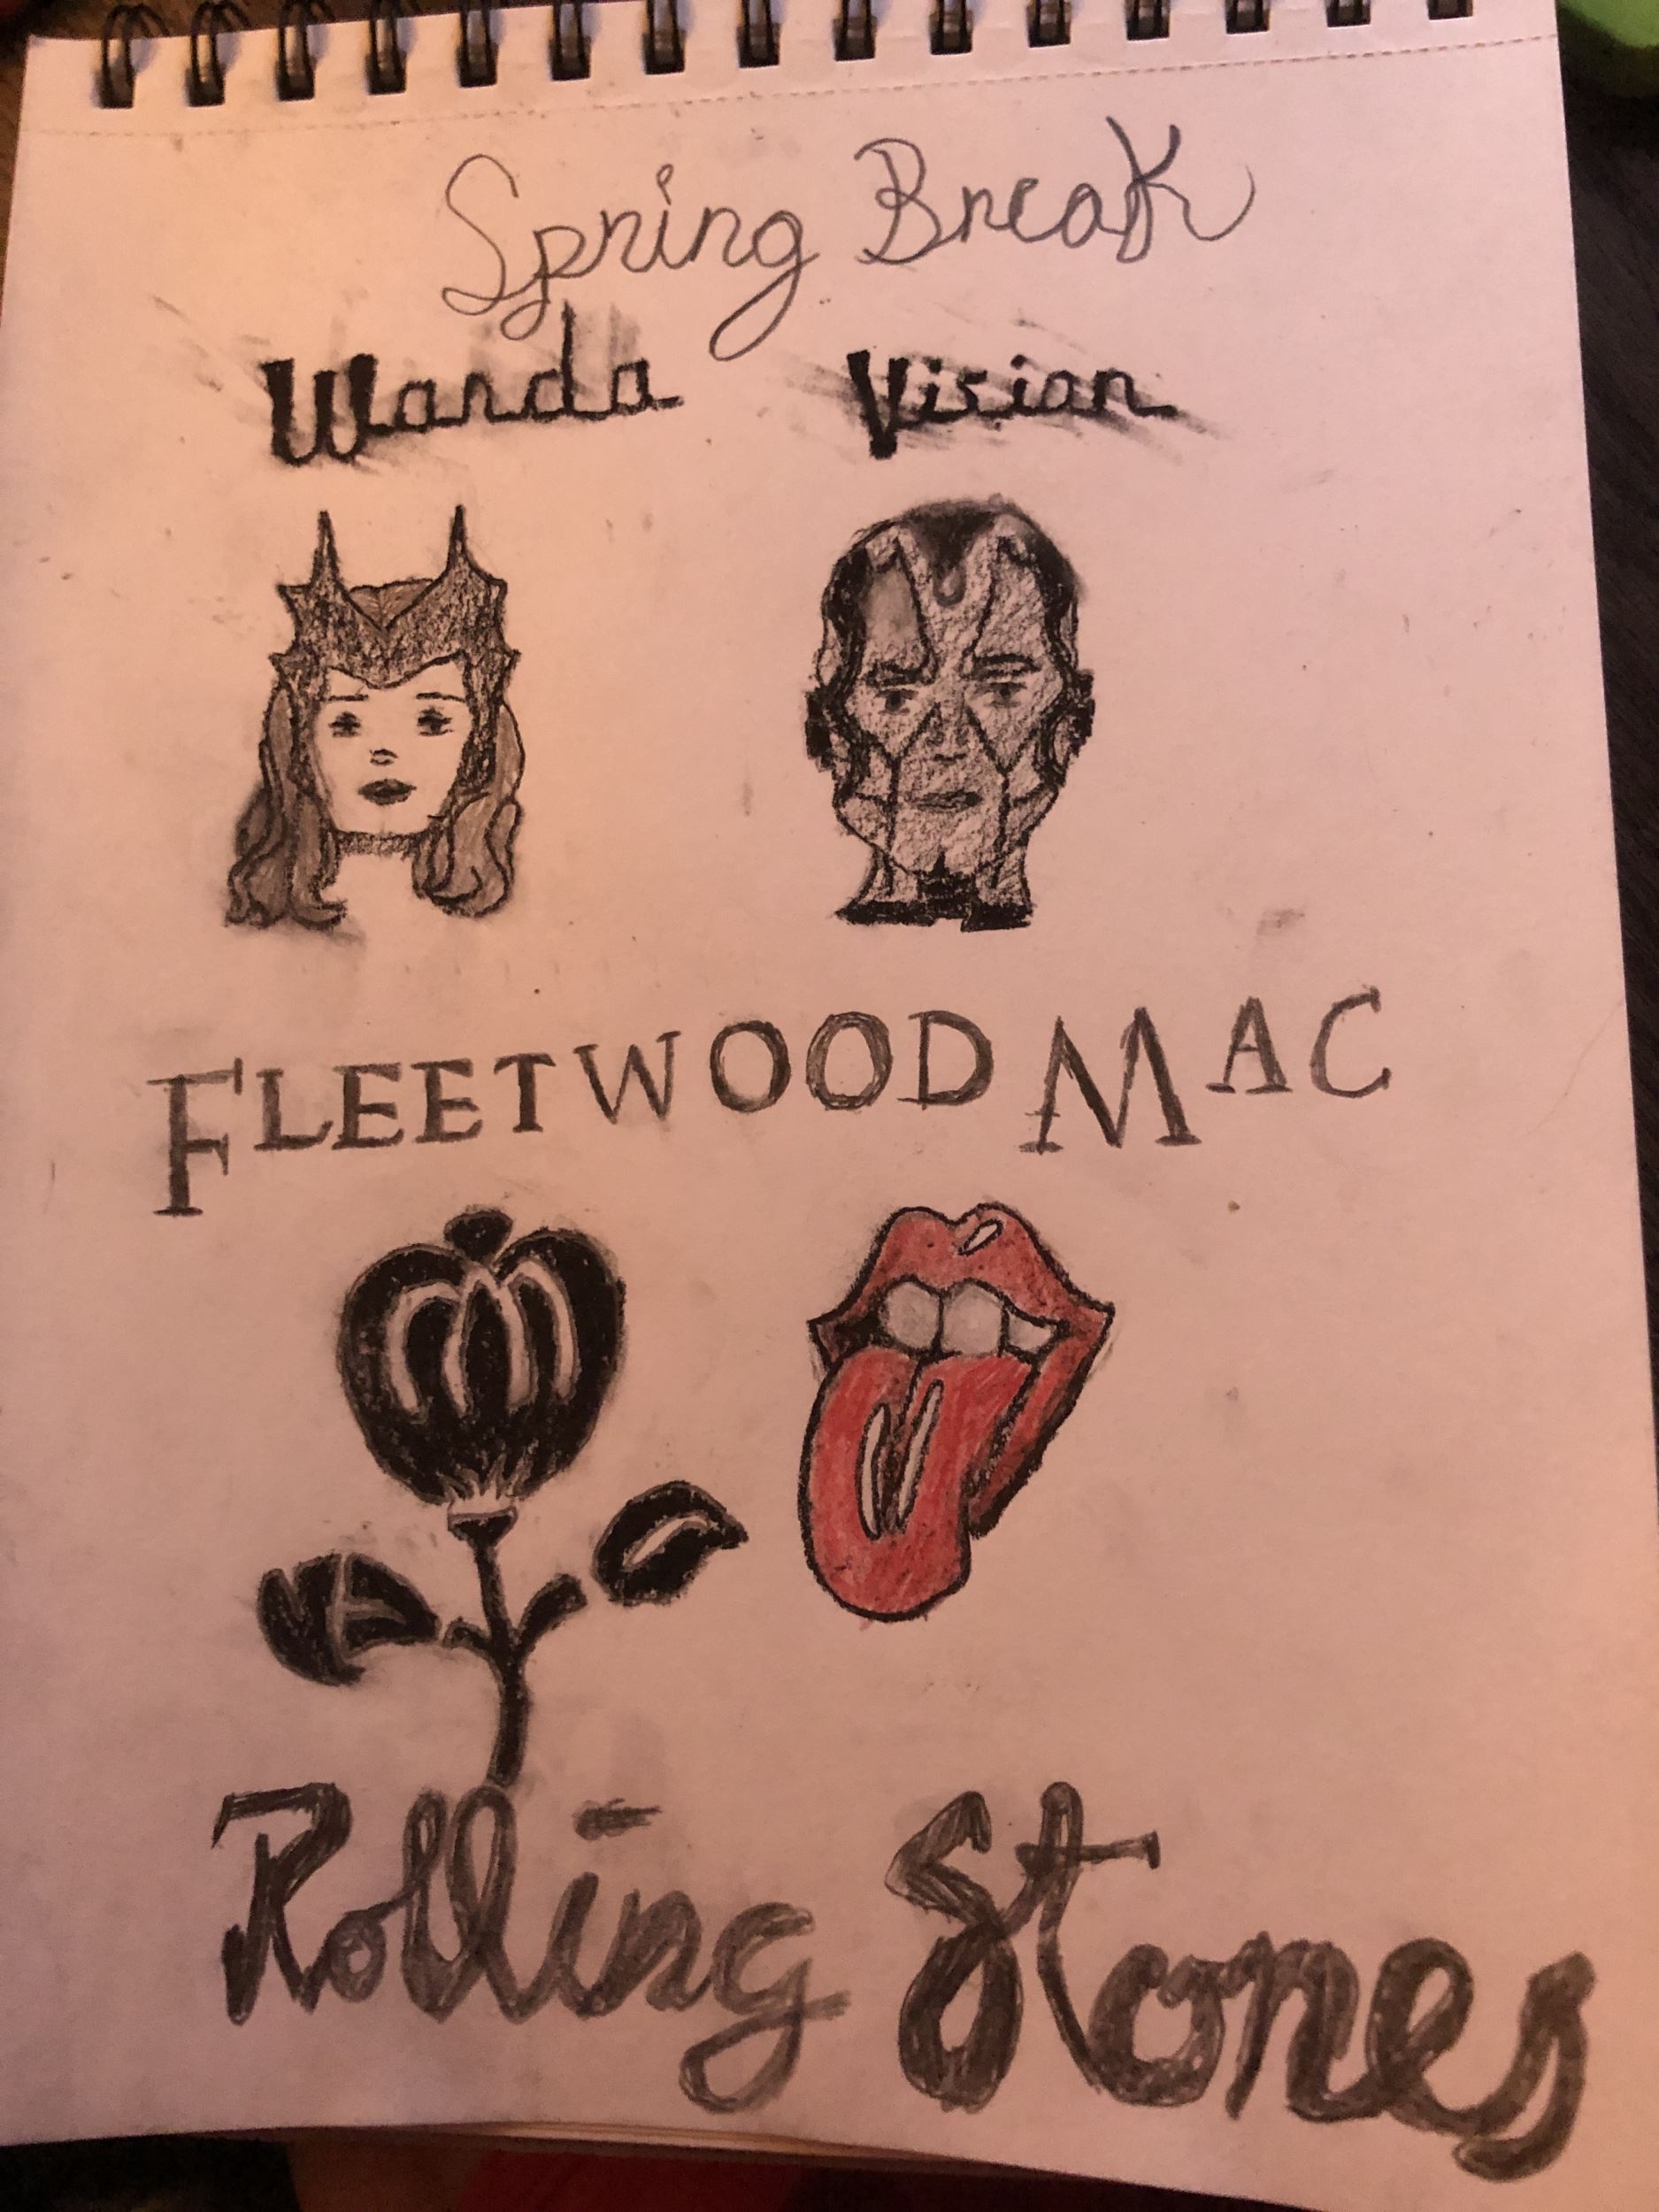 Spring Break
Wanda Vision
FLEETWOOD MAC
Rolling Stones